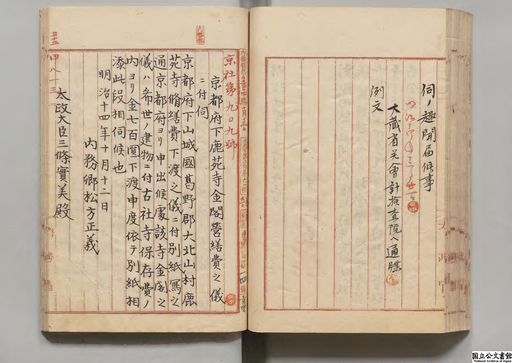 伺ノ趣聞届候事
例文
大蔵省並会計検査院ヘ通牒
京社第九〇九號
京都府下鹿苑寺金閣営繕費之儀
ニ付伺
京都府下山城國葛野郡大北山村鹿
苑寺脩繕費下渡之儀ニ付別紙寫之
通京都府ヨリ申出候處該寺金閣之
儀ハ希世ノ建物ニ付古社寺保存費ノ
内ヨリ金七百圓下渡申度依テ別紙相
添此段相伺候也
明治十四年十月十二日
内務卿松方正義
太政大臣三條實美殿
甲八十三
国立公文書館
National Archives of Japan